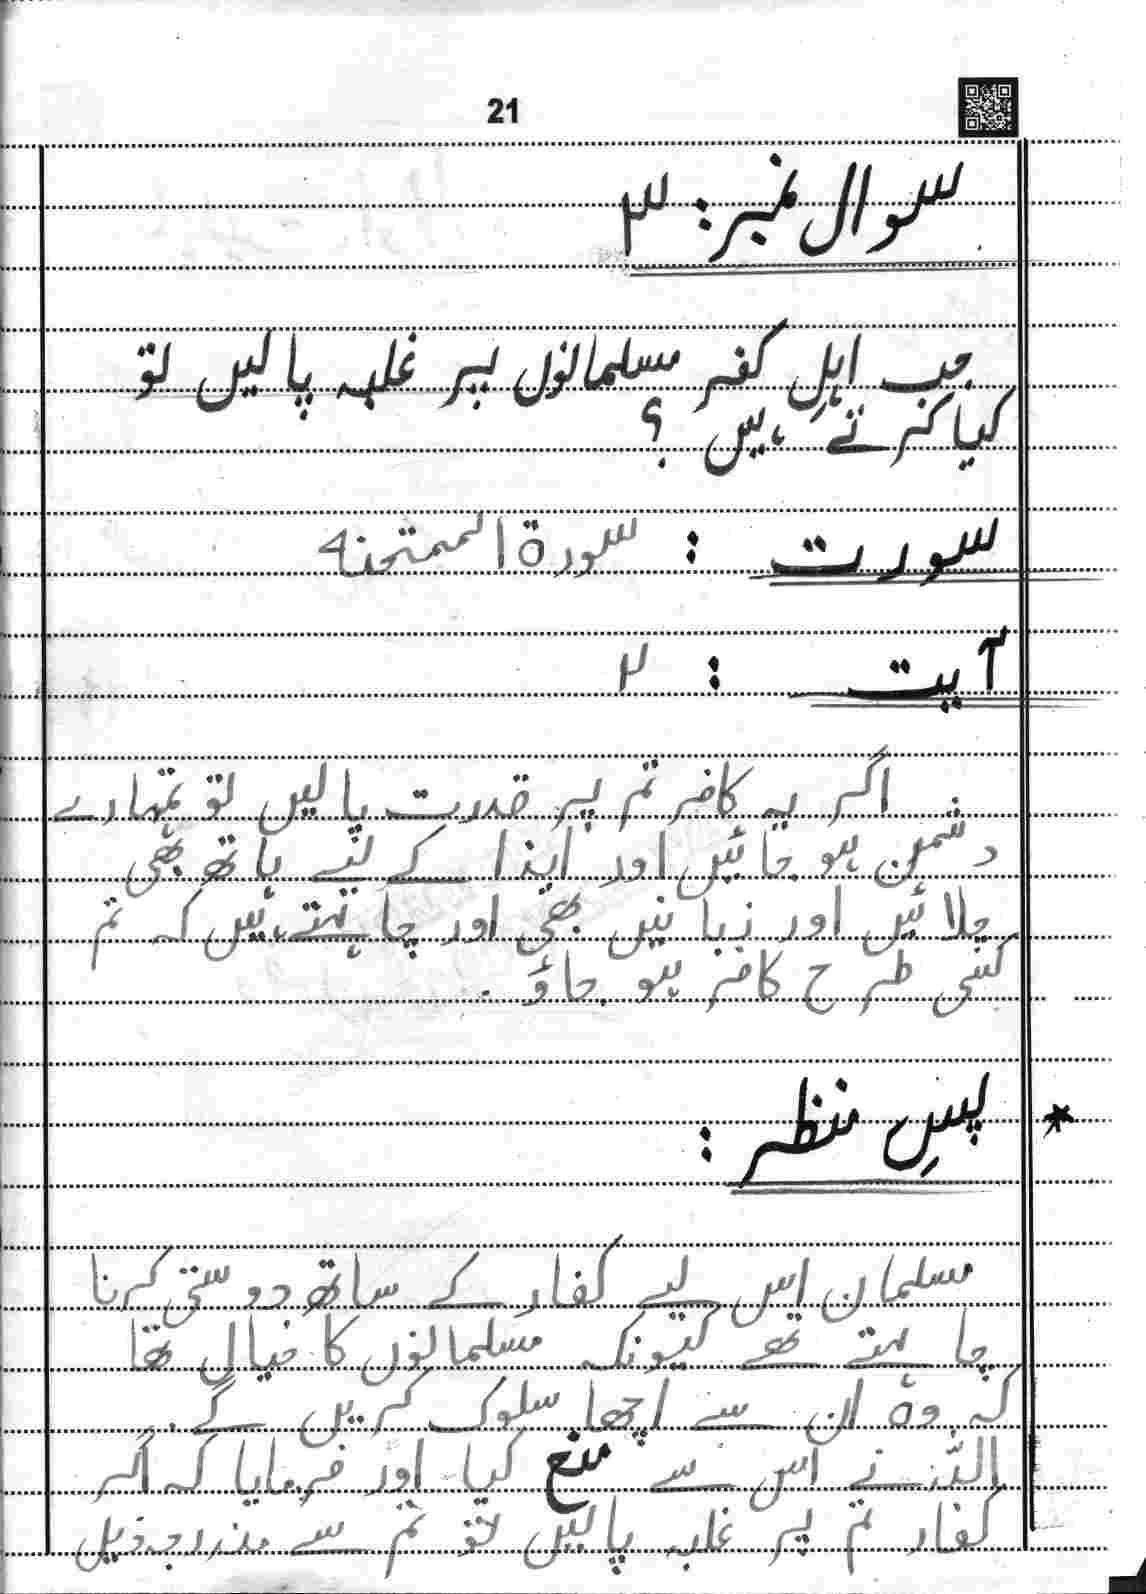 21
سوال نمبر: ۳
جب اہلِ کفر مسلمانوں پر غلبہ پا لیں تو
کیا کرتے ہیں ؟
سورت : سورة الممتحنه
آیت : ۲
اگر یہ کافر تم پر قدرت پا لیں تو تمہارے
دشمن ہو جائیں اور ایذا کے لئے ہاتھ بھی
چلائیں اور زبانیں بھی اور چاہتے ہیں کہ تم
کسی طرح کافر ہو جاؤ .
* پسِ منظر :
مسلمان اس لیے کفار کے ساتھ دوستی کرنا
چاہتے تھے کیونکہ مسلمانوں کا خیال تھا
کہ وہ ان سے اچھا سلوک کریں گے.
اللہ نے اس سے منع کیا اور فرمایا کہ اگر
کفار تم پر غلبہ پا لیں تو تم سے مندرجہ ذیل